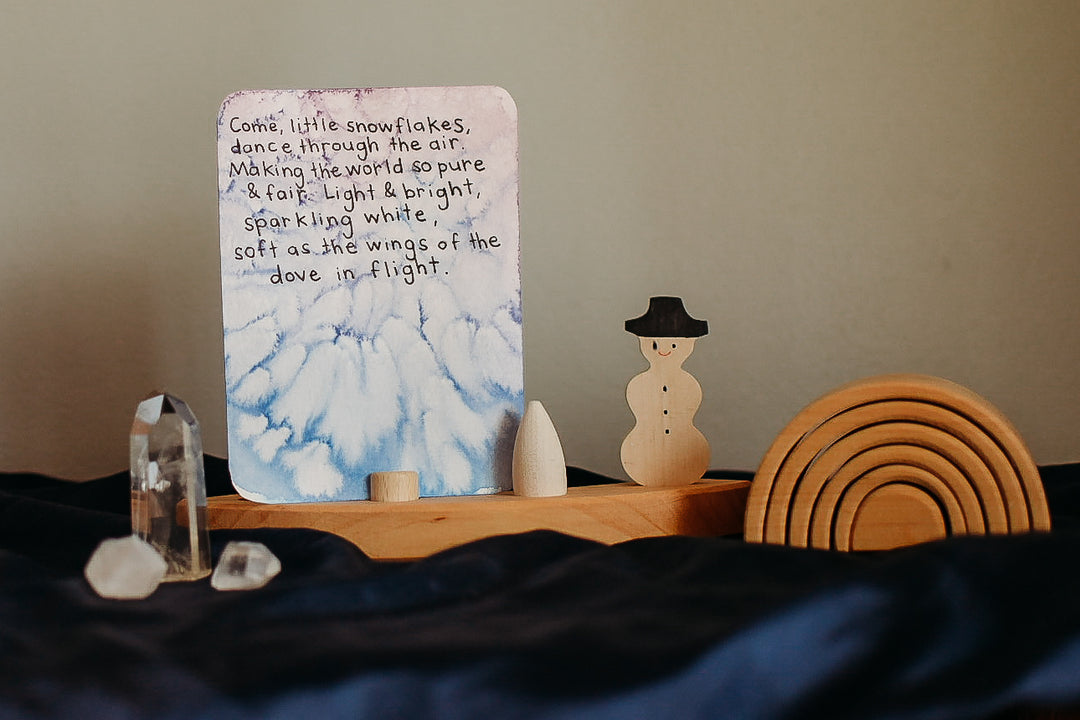 Come, little snowflakes,
dance through the air.
Making the world so pure
& fair. Light & bright,
sparkling white,
soft as the wings of the
dove in flight.